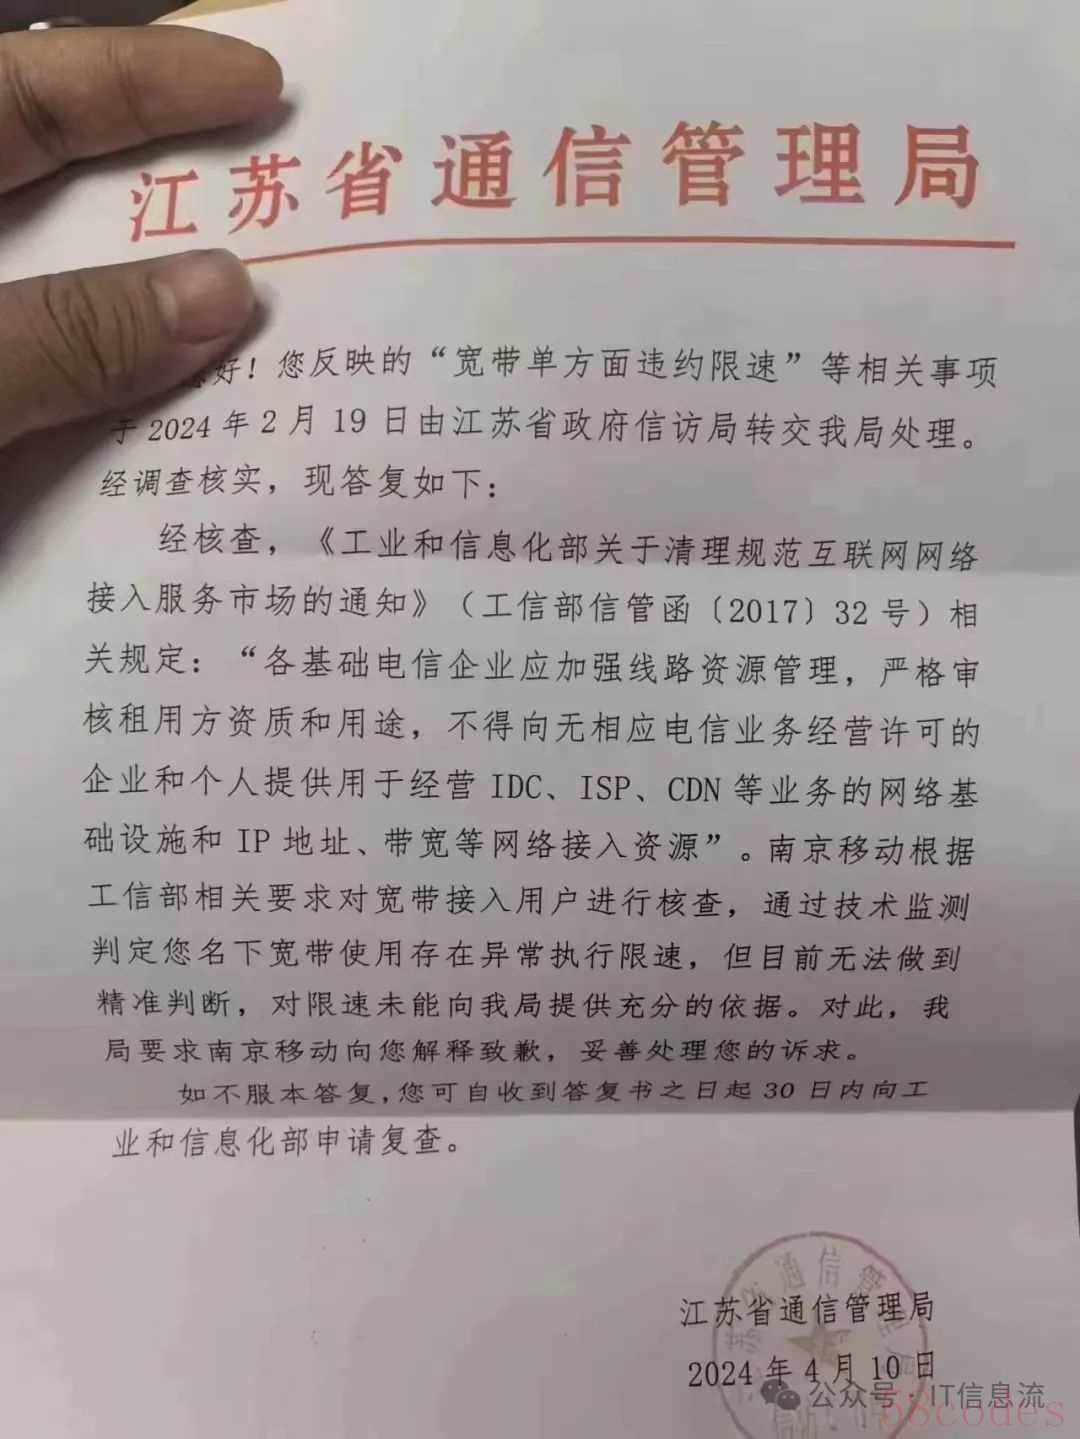 江苏省通信管理局
好！您反映的“宽带单方面违约限速”等相关事项
于2024年2月19日由江苏省政府信访局转交我局处理。
经调查核实，现答复如下：
经核查，《工业和信息化部关于清理规范互联网网络
接入服务市场的通知》（工信部信管函〔2017〕32号）相
关规定：“各基础电信企业应加强线路资源管理，严格审
核租用方资质和用途，不得向无相应电信业务经营许可的
企业和个人提供用于经营IDC、ISP、CDN等业务的网络基
础设施和IP地址、带宽等网络接入资源”。南京移动根据
工信部相关要求对宽带接入用户进行核查，通过技术监测
判定您名下宽带使用存在异常执行限速，但目前无法做到
精准判断，对限速未能向我局提供充分的依据。对此，我
局要求南京移动向您解释致歉，妥善处理您的诉求。
如不服本答复，您可自收到答复书之日起30日内向工
业和信息化部申请复查。
江苏省通信管理局
2024年4月10日
公众号·IT信息流
58codes